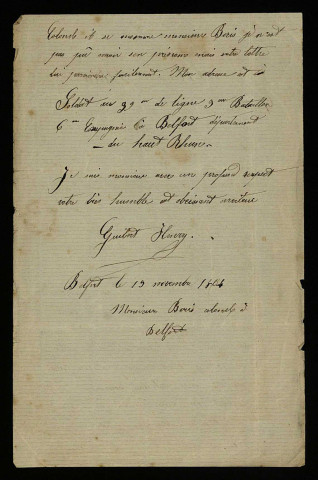 Colonel il se nomme monsieur Boris je n'ait
pas pû savoir son prénom mais votre lettre
lui parviendra facilement. Mon adresse est à
Soldat au 39me de ligne 3me Bataillon
6me Compagnie à Belfort département
du haut Rhin
Je suis monsieur avec un profond respect
votre très humble et obéissant serviteur
Guibert Henry.
Belfort le 13 novembre 1864
Monsieur Boris colonel à
Belfort